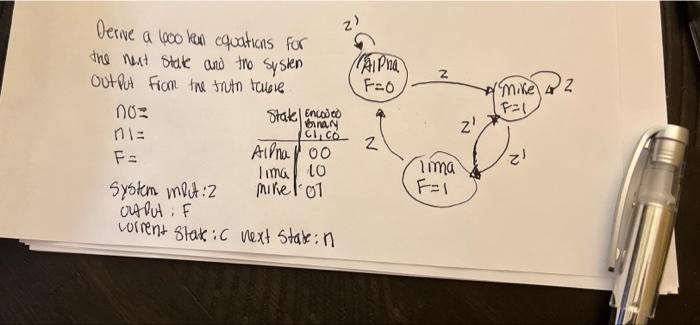 Derive a boolean equations for
the next state and the system
output from the truth table
n0=
n1=
F=
State Encoded
Binary
C1, C0
Alpha 00
lima 10
mike 01
System input: z
output: F
current state: c next state: n
z'
Alpha
F=0
z
mike
F=1
z
z'
z'
z
lima
F=1